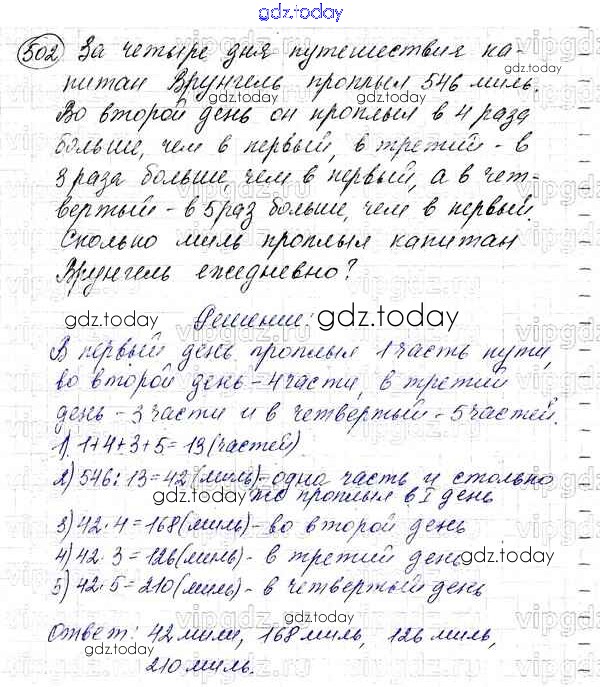 gdz.today
502 За четыре дня путешествия ка-
питан Врунгель проплыл 546 миль.
Во второй день он проплыл в 4 раза
больше, чем в первый, в третий - в
3 раза больше, чем в первый, а в чет-
вертый - в 5 раз больше, чем в первый.
Сколько миль проплыл капитан
Врунгель ежедневно?
Решение:
В первый день проплыл 1 часть пути,
во второй день - 4 части, в третий
день - 3 части и в четвертый - 5 частей.
1) 1+4+3+5=13 (частей)
2) 546:13=42 (миль) - одна часть и столько
же проплыл в I день
3) 42·4=168 (миль) - во второй день
4) 42·3=126 (миль) - в третий день
5) 42·5=210 (миль) - в четвертый день
Ответ: 42 мили, 168 миль, 126 миль,
210 миль.